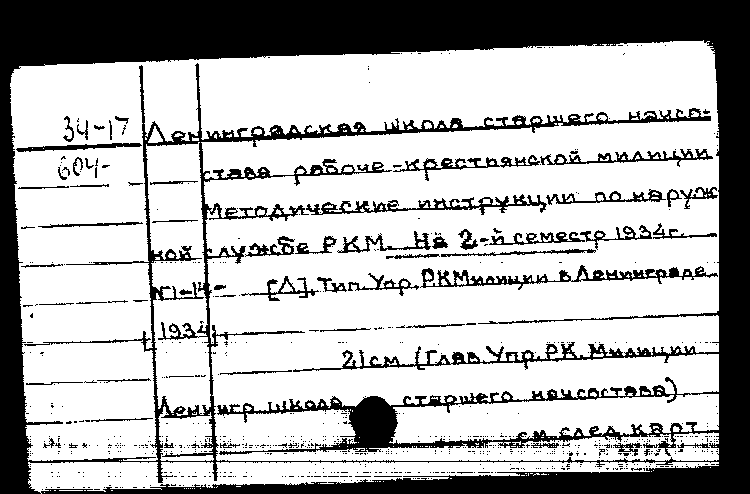 34-17 Ленинградская школа старшего начсо-
604- става рабоче-крестьянской милиции.
Методические инструкции по наруж
ной службе РКМ. На 2-й семестр 1934г.
№1-14- [Л], Тип. Упр. РКМилиции в Ленинграде
[1934],
21см (Глав. Упр. РК. Милиции
Ленингр школа старшего начсостава)
см след карт